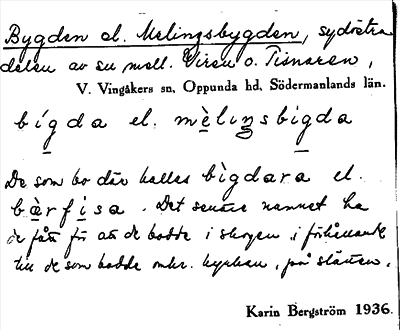 Bygden el. Melingsbygden, sydöstra
delen av sn mell. Viren o. Tisnaren,
V. Vingåkers sn, Oppunda hd, Södermanlands län.
bígda el. mèliŋsbigda
De som bo där kallas bìgdara el.
bæ̀rfisa. Det senare namnet ha
de fått för att de bodde i skogen i förhållande
till de som bodde omkr. kyrkan, på slätten.
Karin Bergström 1936.